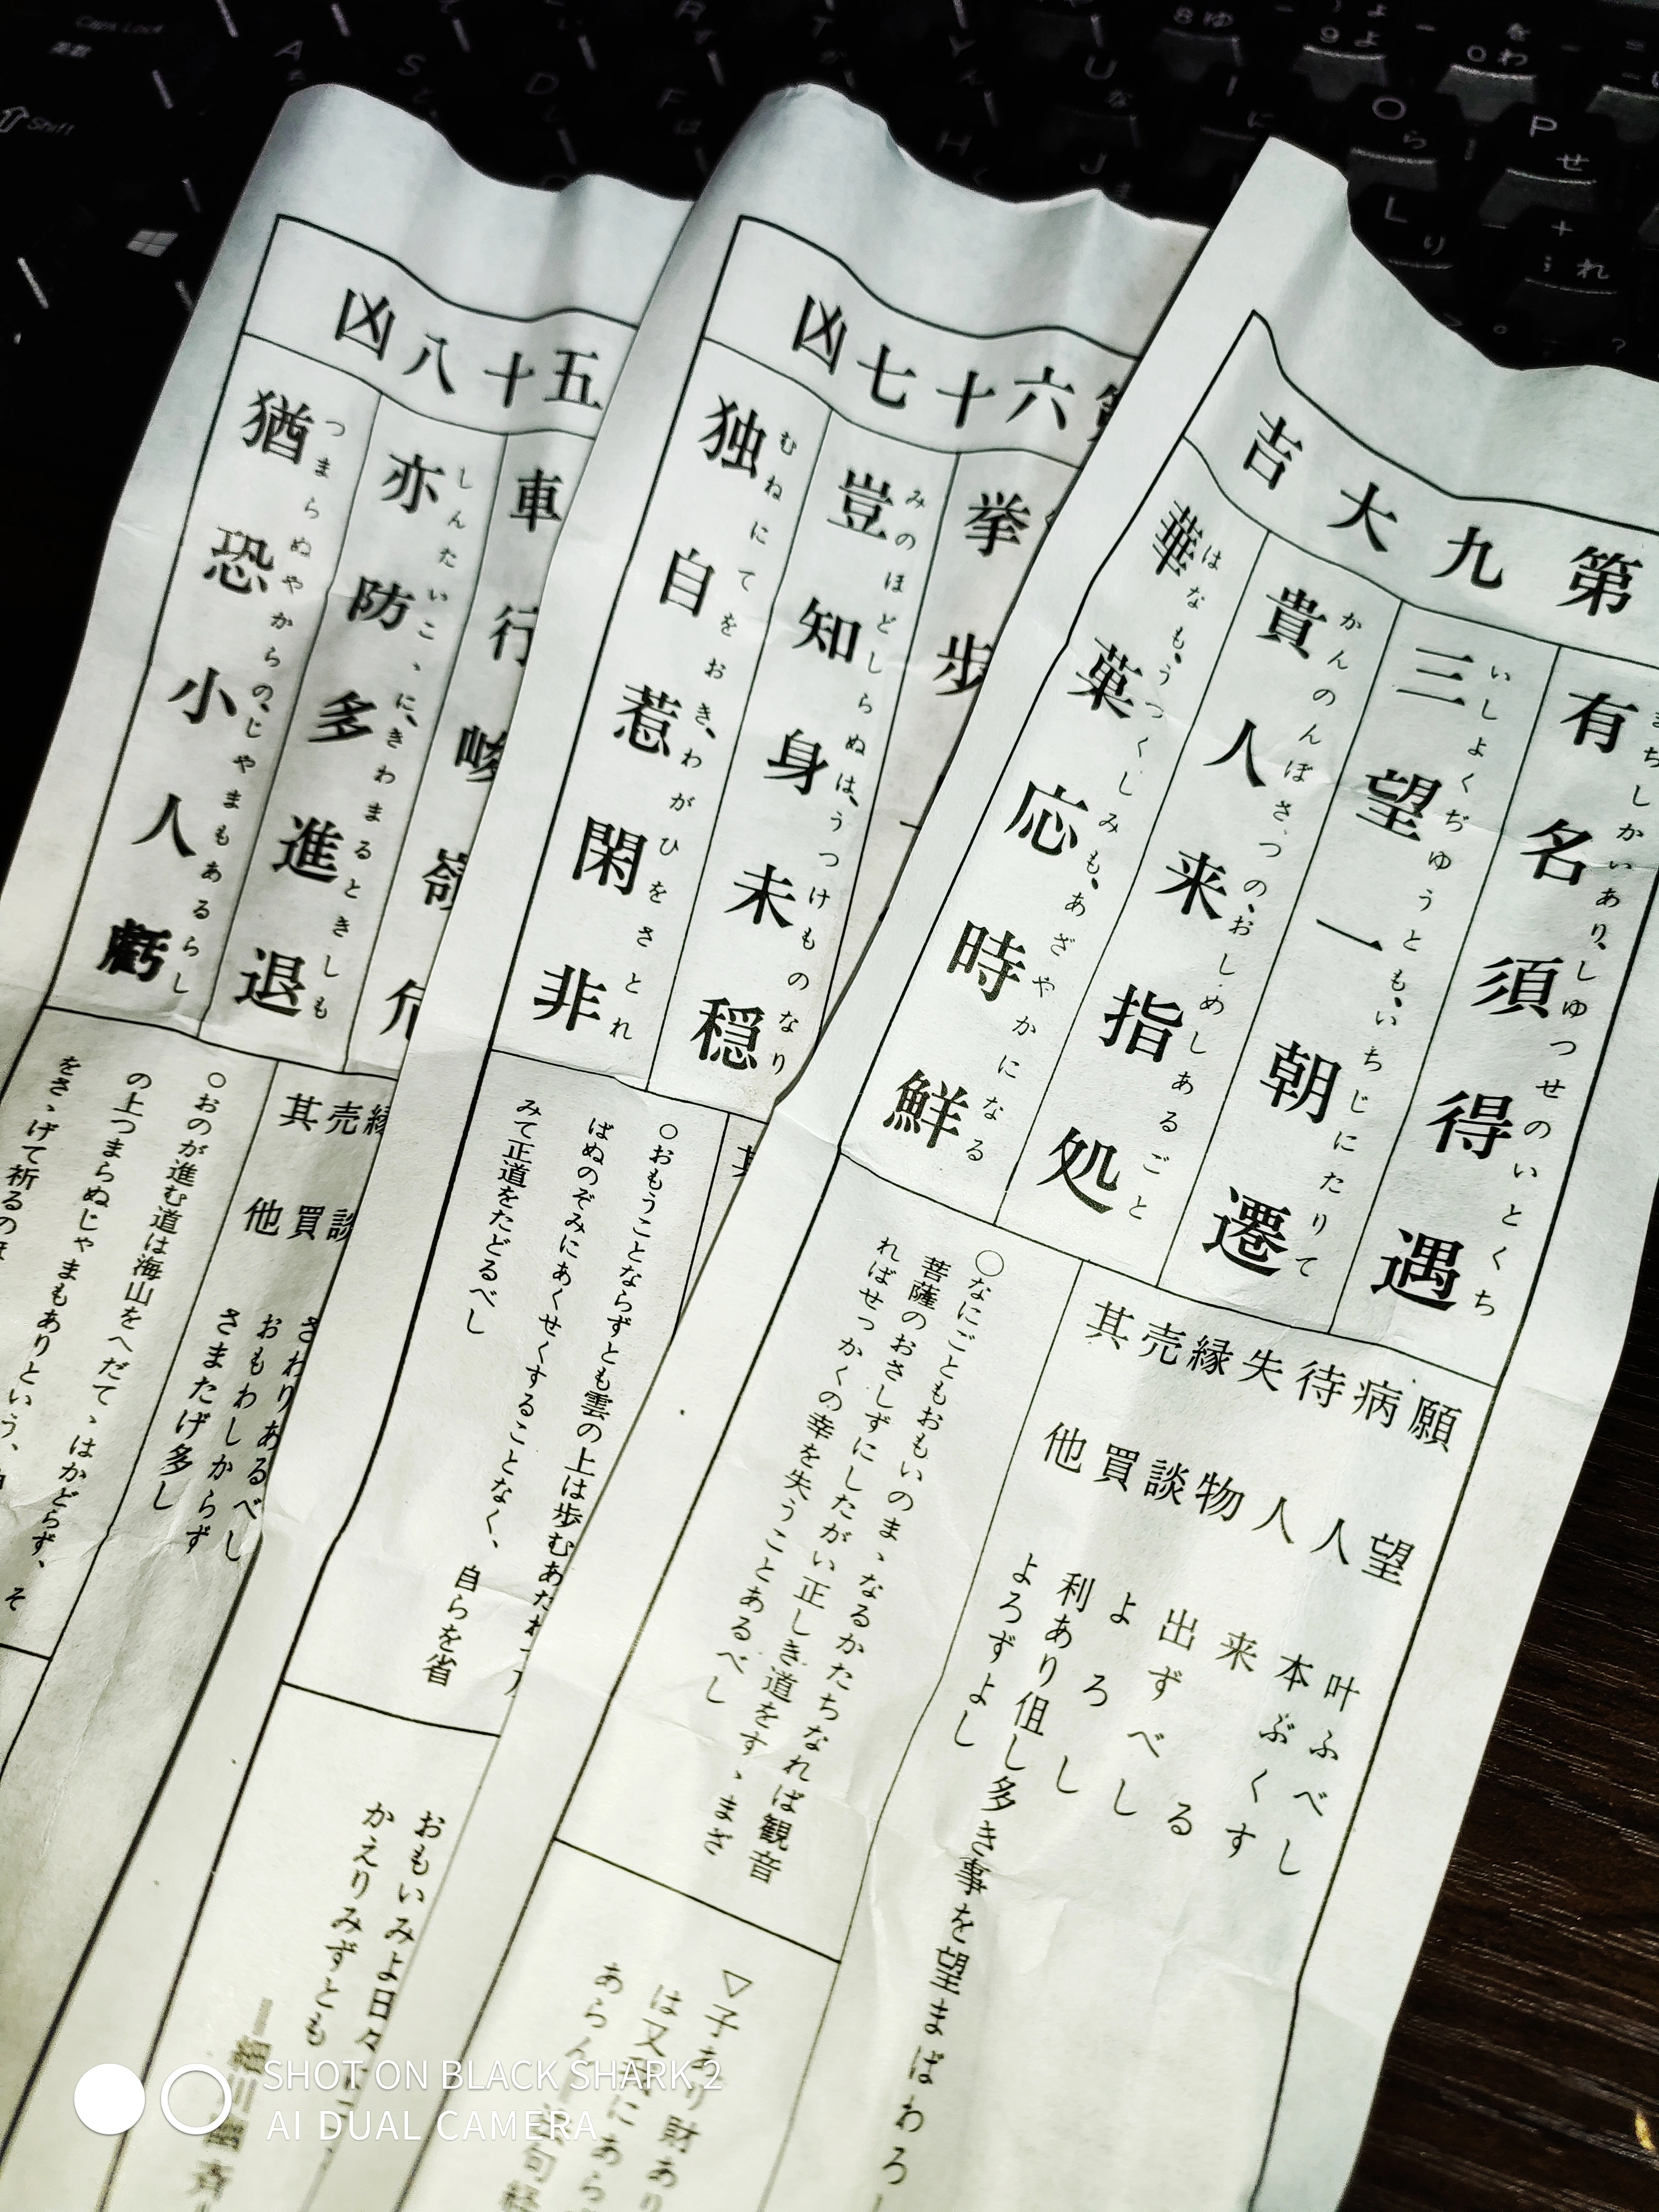 第九大吉
有名須得遇
三望一朝遷
いしよくぢゆうとも、いちじにたりて
貴人来指処
かんのんぼさつの、おしめしあるごと
華菓応時鮮
はなも、うつくしみも、あざやかになる
願望 叶ふべし
病人 本ぶくす
待人 来る
失物 出ずべし
縁談 よろし
売買 利あり伹し多き事を望まばわろし
其他 よろずよし
○なにごともおもいのまゝなるかたちなれば観音
菩薩のおさしずにしたがい正しき道をすゝまざ
ればせっかくの幸を失うことあるべし
▽子あり財あり
は又
あらん
六十七凶
挙歩
豈知身未穏
みのほどしらぬは、うつけものなり
独自惹閑非
むねにてをおき、わがひをさとれ
○おもうことならずとも雲の上は歩むあたわ
ばぬのぞみにあくせくすることなく、自らを省
みて正道をたどるべし
おもいみよ日々
かえりみずとも
五十八凶
車行
亦防多進退
しんたいこゝに、きわまるときしも
猶恐小人虧
つまらぬやからの、じやまもあるらし
縁談 さわりあるべし
売買 おもわしからず
其他 さまたげ多し
○おのが進む道は海山をへだてゝはかどらず、そ
の上つまらぬじゃまもありという、
をさゝげて祈るの
Caps Lock
英数
Shift
A
S
D
F
H
J
L り
O ら
P せ
U な
R
T
Y
8 ゆ
9 よ
0 わ
を
れ
SHOT ON BLACK SHARK 2
AI DUAL CAMERA